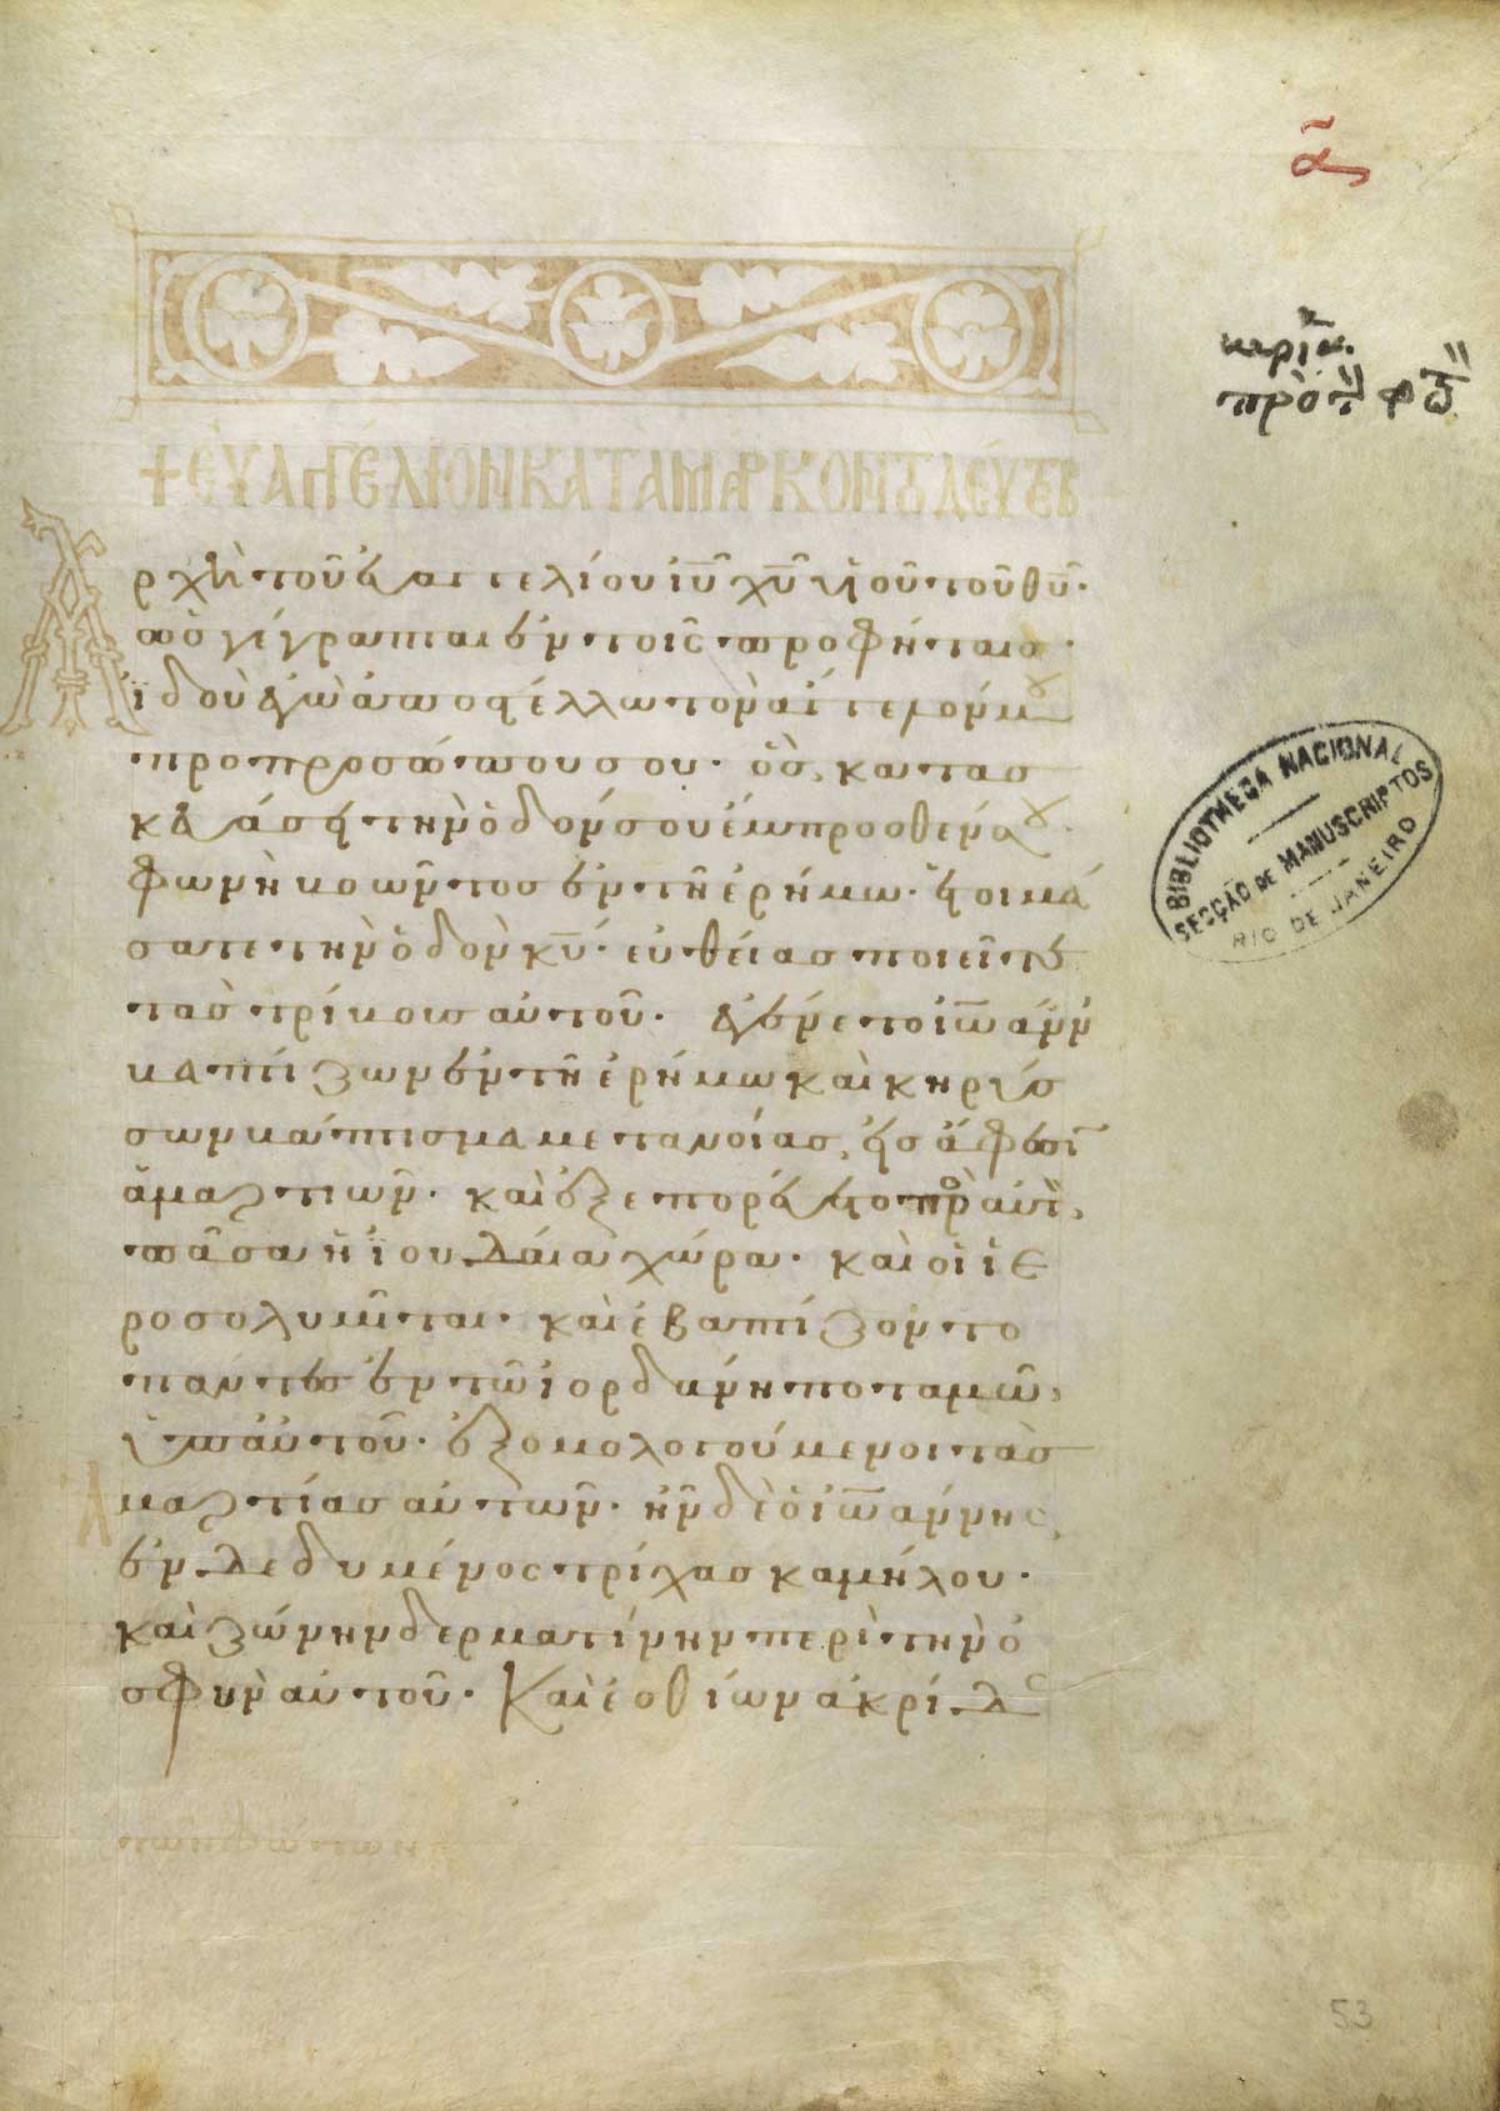 α̃
κυρϊακ.
πρὸ τ φώτ
+ ΕΥΑΓΓΕΛΙΟΝ ΚΑΤΑ ΜΑΡΚΟΝ
Αρχὴ τοῦ εὐαγγελίου ἰῦ χῦ υἱοῦ τοῦ θῦ·
ὡς γέγραπται ἐν τοῖς προφήταις·
ἰδοὺ ἐγὼ ἀποστέλλω τὸν ἄγγελόν μου
προ προσώπου σου· ὃς, κατασ
κευάσει τὴν ὁδόν σου ἔμπροσθέν σου·
φωνὴ βοῶντος ἐν τῆ ἐρήμω· ἑτοιμά
σατε τὴν ὁδὸν κῦ· εὐθείας ποιεῖτε
τὰς τρίβους αὐτοῦ· ἐγένετο ἰωάνν
βαπτίζων ἐν τῆ ἐρήμω καὶ κηρύσ
σων βάπτισμα μετανοίας, εἰς ἄφεσϊ
ἁμαρτιῶν· καὶ ἐξεπορεύετο πρὸ αὐτ,
πᾶσα ἡ ϊουδαία χώρα· καὶ οἱ ἱε
ροσολυμῖται· καὶ ἐβαπτίζοντο
πάντες ἐν τῶ ἰορδάνη ποταμῶ,
ὑπ αὐτοῦ· ἐξομολογούμενοι τὰς
ἁμαρτίας αὐτῶν· ἦν δὲ ὁ ἰωάννης,
ἐνδεδυμένος τρίχας καμήλου·
καὶ ζώνην δερματίνην περὶ τὴν ὀ
σφὺν αὐτοῦ· Καὶ ἐσθίων ἀκρίδ
BIBLIOTHECA NACIONAL
SECÇÃO DE MANUSCRIPTOS
RIO DE JANEIRO
53